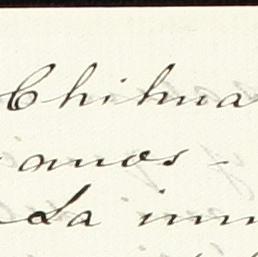 Chihua
anos -
La inm